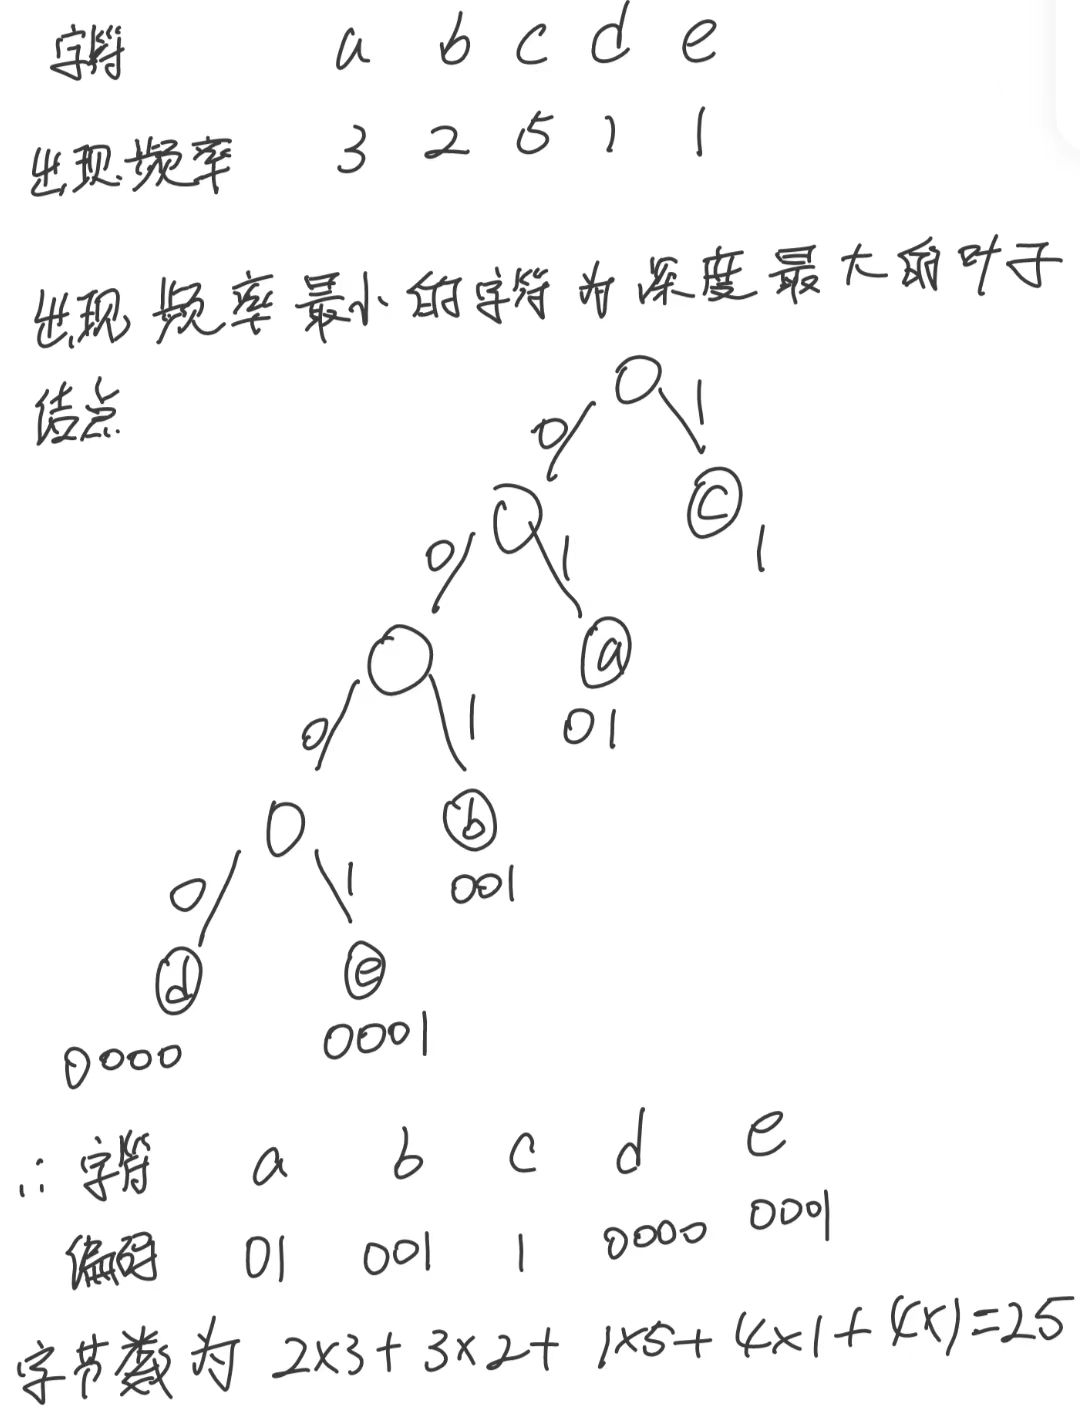 字符 a b c d e
出现频率 3 2 5 1 1
出现频率最小的字符为深度最大的叶子
结点
0 1
c
0 1 1
a
0 1 01
b
0 1 001
d e
0000 0001
∴ 字符 a b c d e
编码 01 001 1 0000 0001
字节数为 2×3+3×2+1×5+4×1+4×1=25